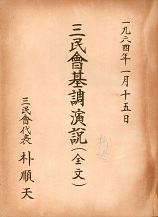 一九六四年一月十五日
三民會基調演説(全文)
三民會代表 朴順天